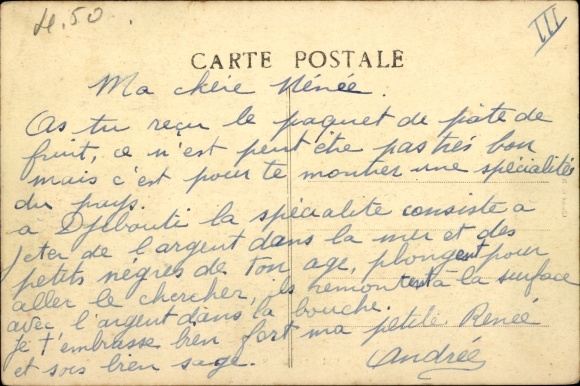 4.50
III
CARTE POSTALE
Ma chère Rénée.
As tu reçu le paquet de pâte de
fruit, ce n'est peut être pas très bon
mais c'est pour te montrer une spécialités
du pays.
a Djibouti la spécialité consiste a
jeter de l'argent dans la mer et des
petits nègres de ton age, plongent pour
aller le chercher, ils remontent à la surface
avec l'argent dans la bouche.
je t'embrasse bien fort ma petite Renée
et sois bien sage. Andrée